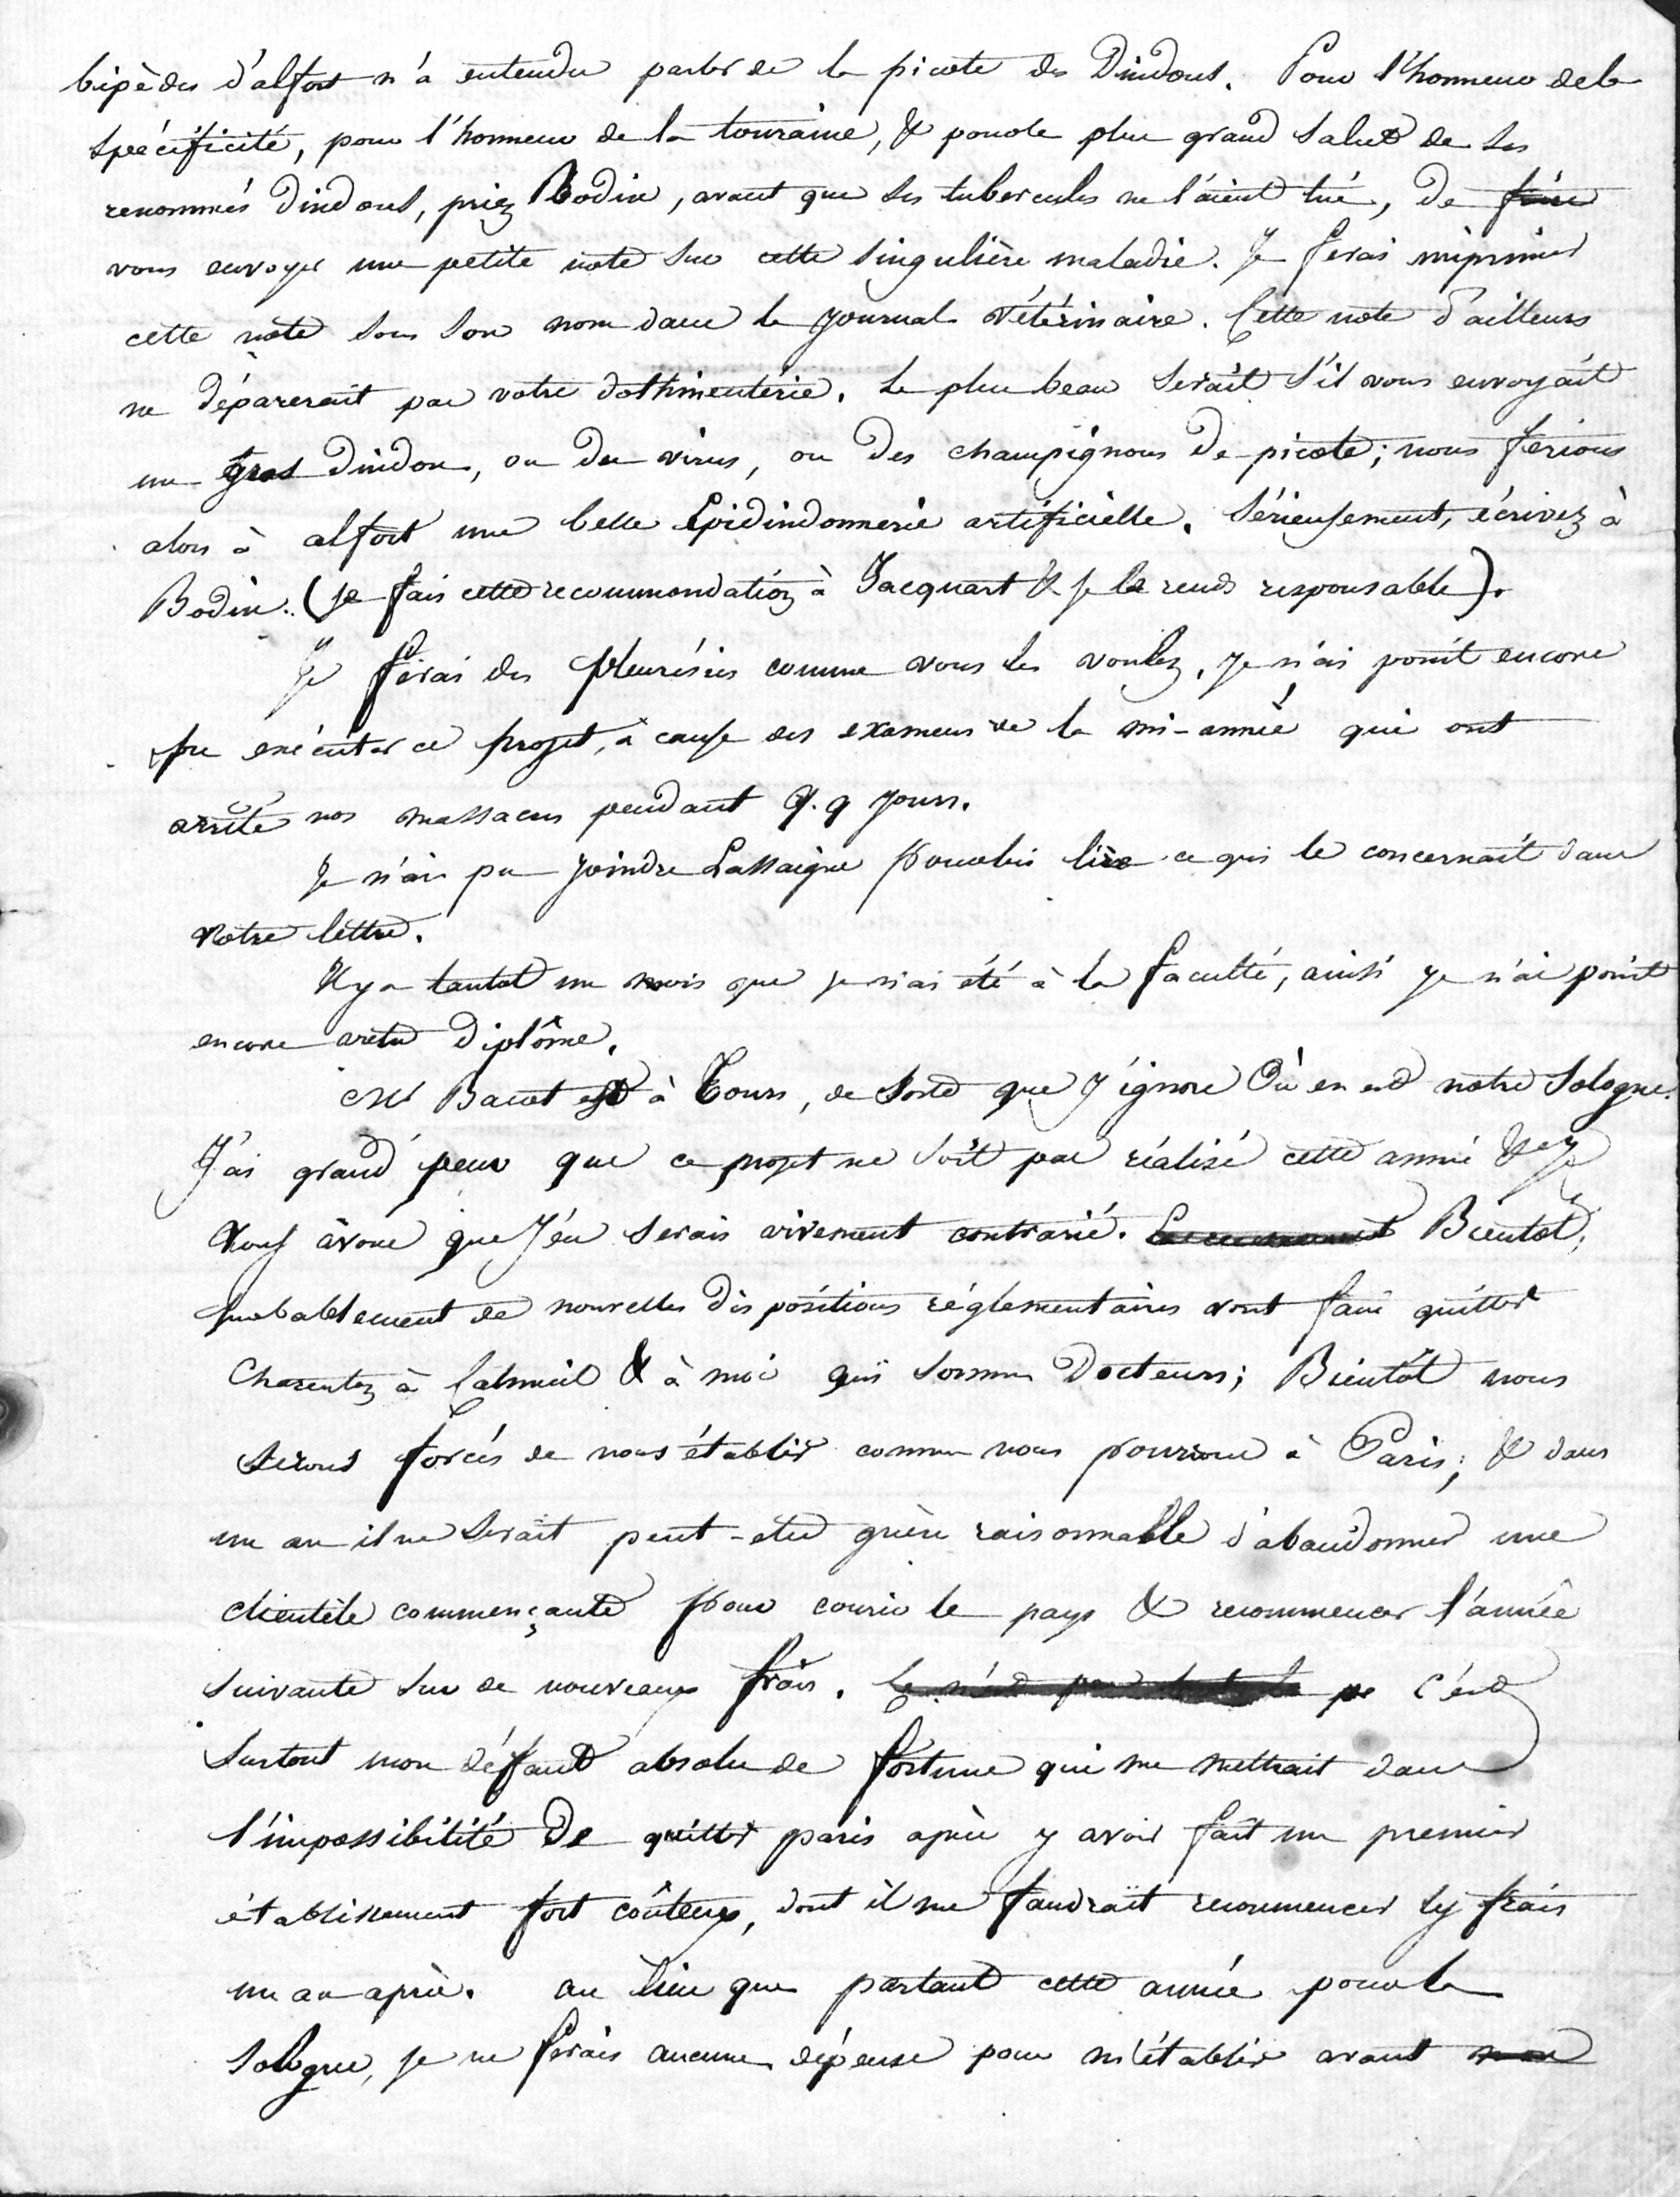 bipèdes d'alfort n'a entendu parler de la picote des Dindons. Pour l'honneur de la
spécificité, pour l'honneur de la touraine, & pour le plus grand salut de ses
renommés dindons, priez Bodin, avant que ses tubercules ne l'aient tué, de faire
vous envoyer une petite note sur cette singulière maladie. Je ferai imprimer
cette note sous son nom dans le journal vétérinaire. Cette note d'ailleurs
ne déparerait pas votre dothinenterie. Le plus beau serait s'il vous envoyait
un gros dindon, ou du virus, ou des champignons de picote; nous ferions
alors à alfort une belle Epidindonnerie artificielle. Sérieusement, écrivez à
Bodin. (je fais cette recommandation à Jacquart & je le rends responsable).
Je ferai des pleurésies comme vous les voulez. Je n'ai point encore
pu exécuter ce projet, à cause des examens de la mi-année qui ont
arrêté nos massacres pendant q.q jours.
Je n'ai pu joindre Lassaigne pour lui lire ce qui le concernait dans
votre lettre.
Il y a tantot un mois que je n'ai été à la faculté, ainsi je n'ai point
encore votre diplôme.
Mr Bacot est à Tours, de sorte que j'ignore où en est notre Sologne.
J'ai grand peur que ce projet ne soit pas réalisé cette année & je
vous avoue que j'en serais vivement contrarié. Bientot,
probablement de nouvelles dispositions réglementaires vont faire quitter
Charenton à Calmeil & à moi qui sommes Docteurs; Bientôt nous
serons forcés de nous établir comme nous pourrons à Paris; & dans
un an il ne serait peut-etre guère raisonnable d'abandonner une
clientèle commençante pour courir le pays & recommencer l'année
suivante sur de nouveaux frais. C'est
surtout mon défaut absolu de fortune qui me mettrait dans
l'impossibilité de quitter paris après y avoir fait un premier
établissement fort coûteux, dont il me faudrait recommencer les frais
un an après. au lieu que partant cette année pour la
Sologne, je ne ferais aucune dépense pour m'établir avant mon